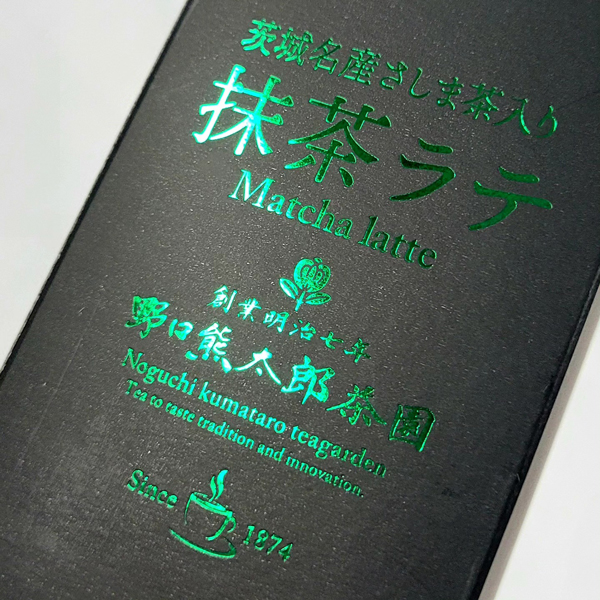 茨城名産さしま茶入り
抹茶ラテ
Matcha latte
創業明治七年
野口熊太郎茶園
Noguchi kumataro teagarden
Tea to taste tradition and innovation.
Since 1874